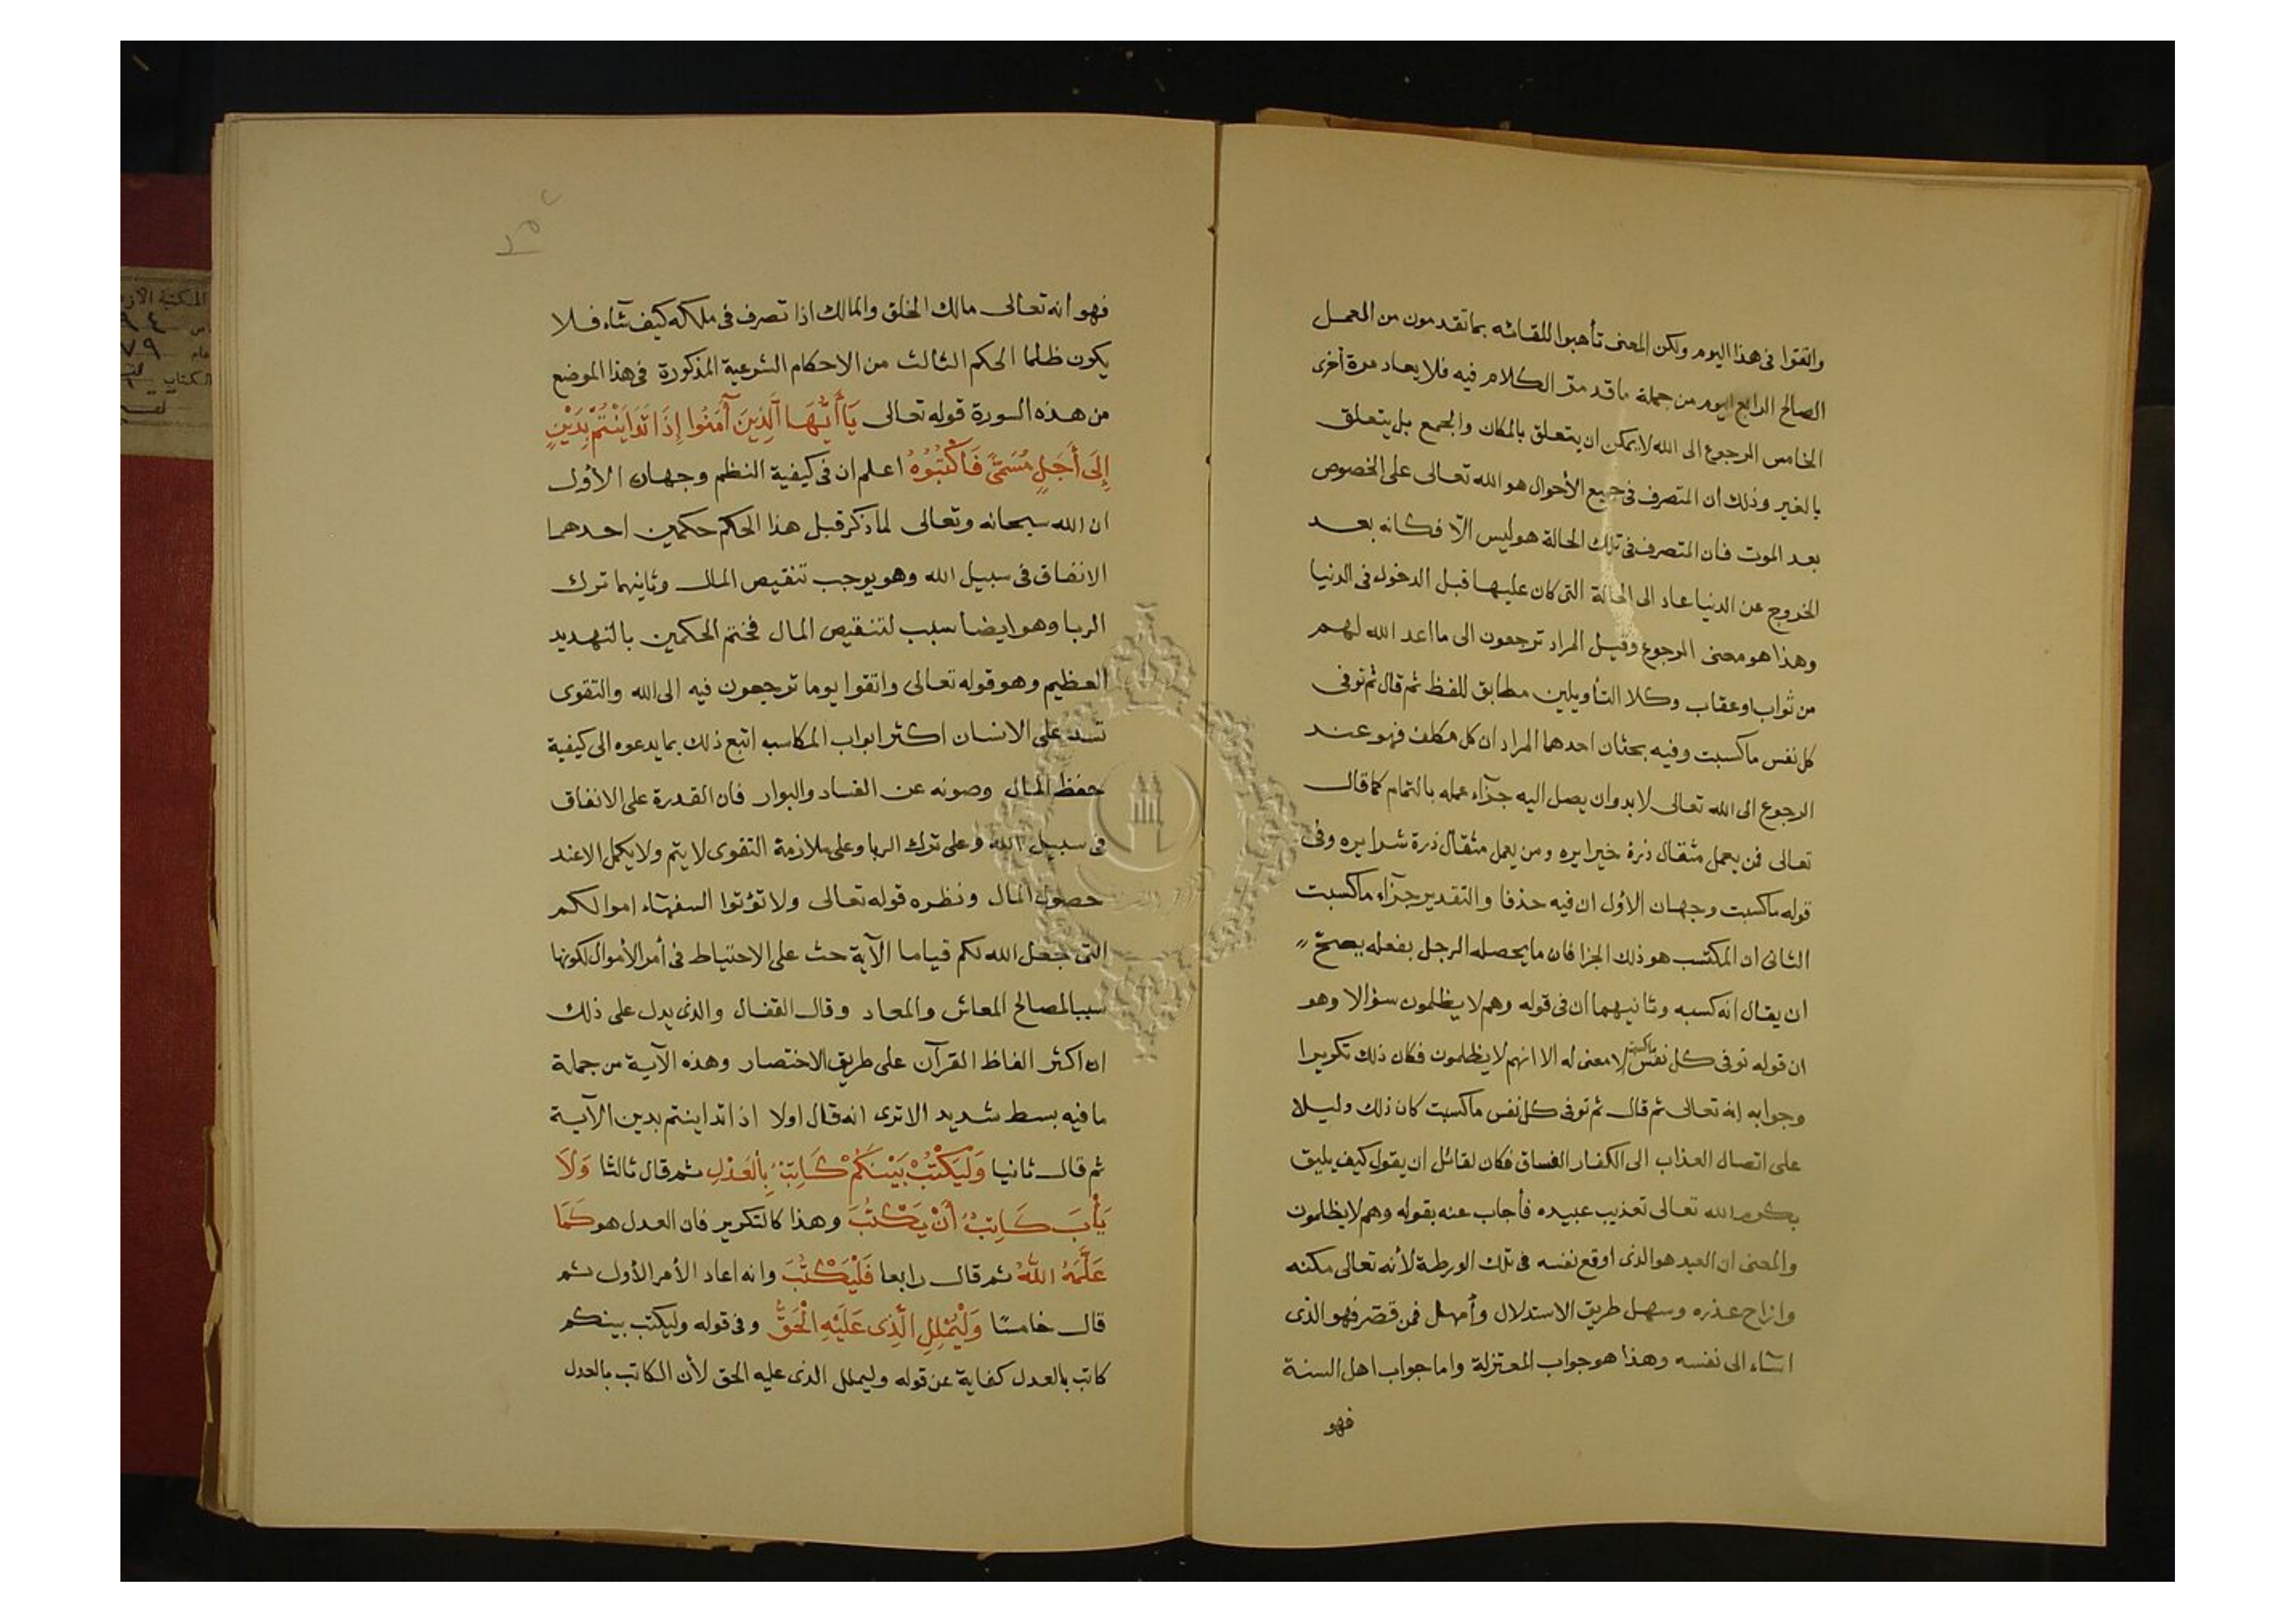 واتقوا فى هذا اليوم ولكن المعنى تأهبوا للقائه بما تقدمون من العمل
الصالح الرابع اليوم من جملة ما قد مر الكلام فيه فلا يعاد مرة أخرى
الخامس الرجوع الى الله لا يمكن ان يتعلق بالمكان والجمع بل يتعلق
بالغير وذلك ان المتصرف فى جميع الأحوال هو الله تعالى على الخصوص
بعد الموت فان المتصرف فى تلك الحالة هو ليس الّا فكانه بعد
الخروج عن الدنيا عاد الى الحالة التى كان عليها قبل الدخول فى الدنيا
وهذا هو معنى الرجوع وقيل المراد ترجعون الى ما اعد الله لهم
من ثواب او عقاب وكلا التأويلين مطابق للفظ ثم قال ثم توفى
كل نفس ما كسبت وفيه بحثان احدهما المراد ان كل مكلف فهو عند
الرجوع الى الله تعالى لا بد وان يصل اليه جزآء عمله بالتمام كما قال
تعالى فمن يعمل مثقال ذرة خيرا يره ومن يعمل مثقال ذرة شرا يره وفى
قوله ما كسبت وجهان الأول ان فيه حذفا والتقدير جزآء ما كسبت
الثانى ان المكتسب هو ذلك الجزا فان ما يحصله الرجل بفعله يصحّ
ان يقال انه كسبه وثانيهما ان فى قوله وهم لا يظلمون سؤالا وهو
ان قوله توفى كل نفس ما كسبت لا معنى له الا انهم لا يظلمون فكان ذلك تكريرا
وجوابه انه تعالى ثم قال ثم توفى كل نفس ما كسبت كان ذلك دليلا
على اتصال العذاب الى الكفار الفساق فكان لقائل ان يقول كيف يليق
بكرم الله تعالى تعذيب عبيده فأجاب عنه بقوله وهم لا يظلمون
والمعنى ان العبد هو الذى اوقع نفسه فى تلك الورطة لأنه تعالى مكنه
وازاح عذره وسهل طريق الاستدلال وأمهل فمن قصّر فهو الذى
اسآء الى نفسه وهذا هو جواب المعتزلة واما جواب اهل السنة
فهو
فهو انه تعالى مالك الخلق والمالك اذا تصرف فى ملكه كيف شآء فلا
يكون ظلما الحكم الثالث من الاحكام الشرعية المذكورة فى هذا الموضع
من هذه السورة قوله تعالى يَا أَيُّهَا الَّذِينَ آمَنُوا إِذَا تَدَايَنْتُمْ بِدَيْنٍ
إِلَى أَجَلٍ مُسَمًّى فَاكْتُبُوهُ اعلم ان فى كيفية النظم وجهان الأول
ان الله سبحانه وتعالى لما ذكر قبل هذا الحكم حكمين احدهما
الانفاق فى سبيل الله وهو يوجب تنقيص المال وثانيهما ترك
الربا وهو ايضا سبب لتنقيص المال فختم الحكمين بالتهديد
العظيم وهو قوله تعالى واتقوا يوما ترجعون فيه الى الله والتقوى
تسد على الانسان اكثر ابواب المكاسب اتبع ذلك بما يدعوه الى كيفية
حفظ المال وصونه عن الفساد والبوار فان القدرة على الانفاق
فى سبيل الله وعلى ترك الربا وعلى ملازمة التقوى لا يتم ولا يكمل الا عند
حصول المال ونظره قوله تعالى ولا تؤتوا السفهآء اموالكم
التى جعل الله لكم قياما الآية حث على الاحتياط فى أمر الأموال لكونها
سببا لمصالح المعاش والمعاد وقال القفال والذى يدل على ذلك
ان اكثر الفاظ القرآن على طريق الاختصار وهذه الآية من جملة
ما فيه بسط شديد الا ترى انه قال اولا اذا تداينتم بدين الآية
ثم قال ثانيا وَلْيَكْتُبْ بَيْنَكُمْ كَاتِبٌ بِالْعَدْلِ ثم قال ثالثا وَلَا
يَأْبَ كَاتِبٌ أَنْ يَكْتُبَ وهذا كالتكرير فان العدل هو كَمَا
عَلَّمَهُ اللهُ ثم قال رابعا فَلْيَكْتُبْ وانه اعاد الأمر الأول ثم
قال خامسًا وَلْيُمْلِلِ الَّذِى عَلَيْهِ الْحَقُّ وفى قوله وليكتب بينكم
كاتب بالعدل كفاية عن قوله وليملل الذى عليه الحق لأن الكاتب بالعدل